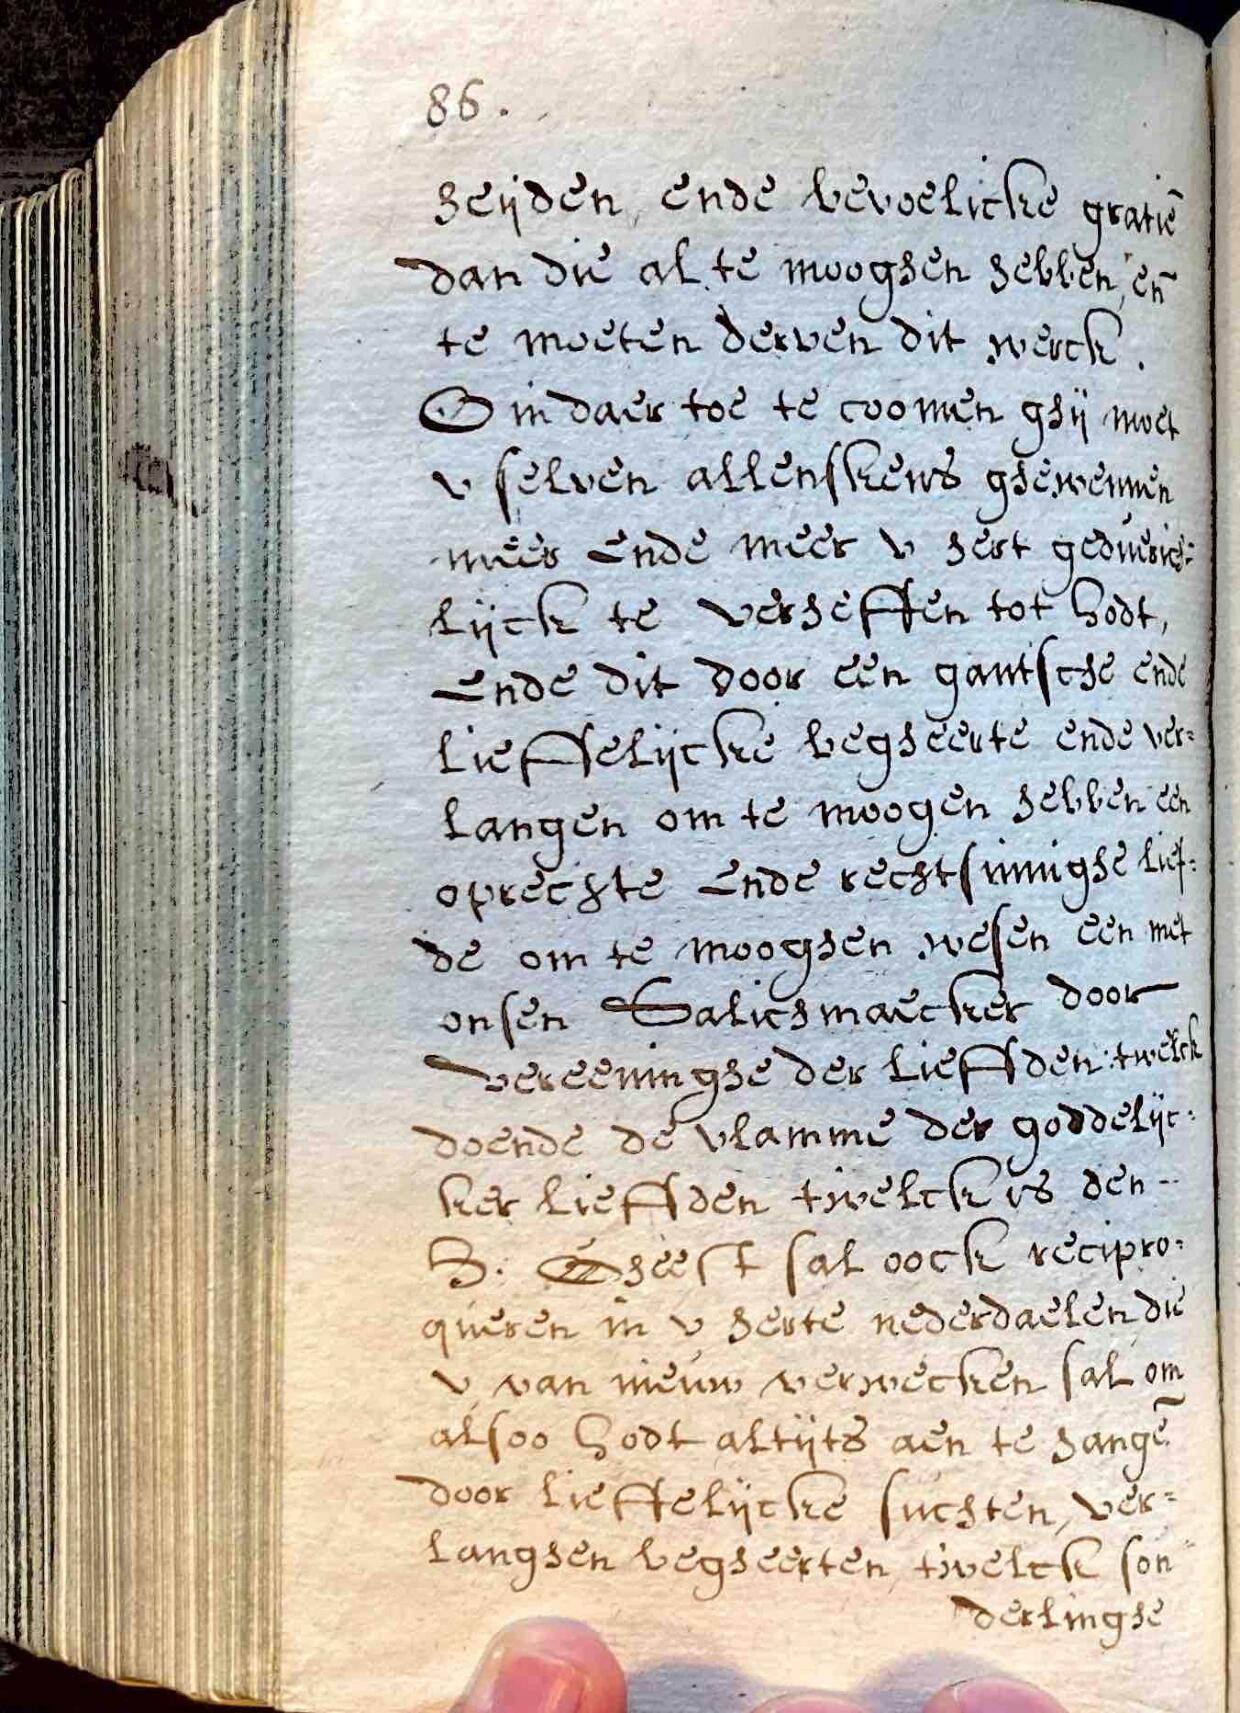 86.
heijden, ende bevoelicke gratiē
dan die al te mooghen hebben, eñ
te moeten derven dit werck.
Om daer toe te coomen ghij moet
v selven allenskens ghewennen
meer ende meer v hert geduerich=
lijck te verheffen tot Godt,
Ende dit door een gantsche ende
lieffelijcke begheerte ende ver=
langen om te moogen hebben een
oprechte Ende rechtsinnighe lief=
de om te mooghen wesen een met
onsen Salichmaecker door
vereeninghe der lieffden: twelck
doende de vlamme der goddelijc=
ker lieffden twelck is den
H. Gheest sal oock recipro=
queren in v herte nederdaelen, die
v van nieuw verwecken sal om
alsoo Godt altijts aen te hangē
door lieffelijcke suchten, ver=
langhen begheerten, twelck son
derlinghe